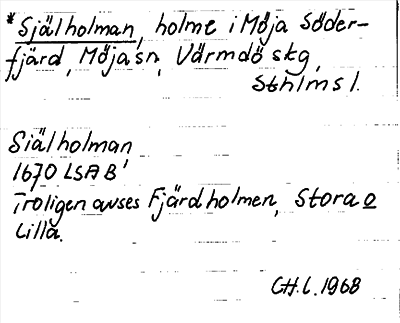 *Själholman, holme i Möja Söder-
fjärd, Möja sn, Värmdö skg,
Sthlms l.
Siälholman,
1670 LSA B'
Troligen avses Fjärdholmen, Stora o
Lilla.
CH.L. 1968